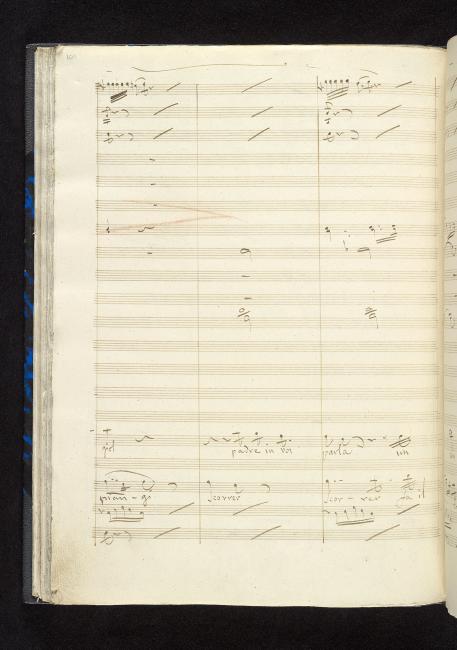 ciel padre in voi parla un
pian - ge scorrer scor - rer fa il